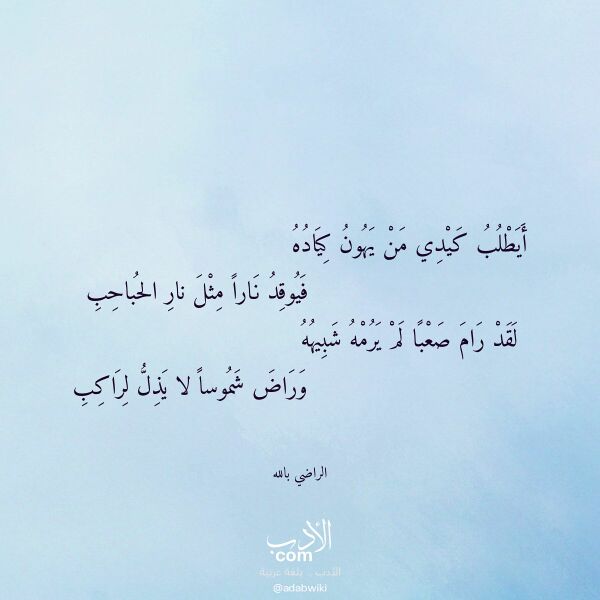 أَيَطْلُبُ كَيْدِي مَنْ يَهُونُ كِيَادُهُ
فَيُوقِدُ نَاراً مِثْلَ نارِ الحُباحِبِ
لَقَدْ رَامَ صَعْبًا لَمْ يَرُمْهُ شَبِيهُهُ
وَرَاضَ شَمُوساً لا يَذِلُّ لِرَاكِبِ
الراضي بالله
الأدب
com
الأدب .. بلغة عربية
@adabwiki